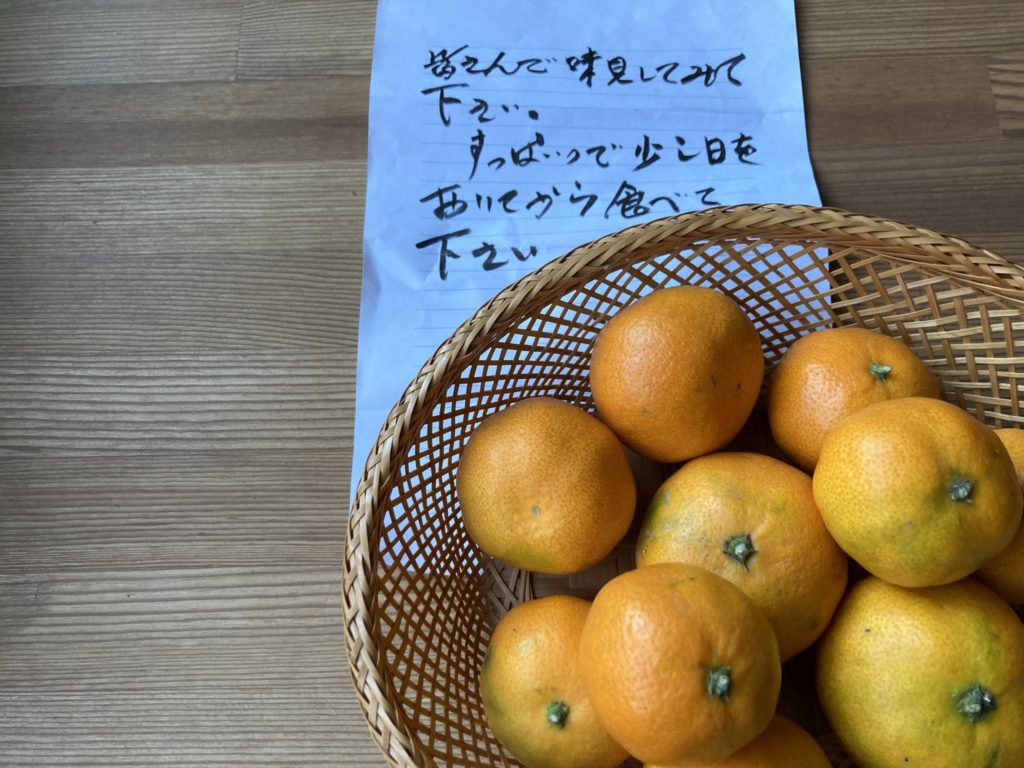 皆さんで味見してみて
下さい。
すっぱいので少し日を
おいてから食べて
下さい